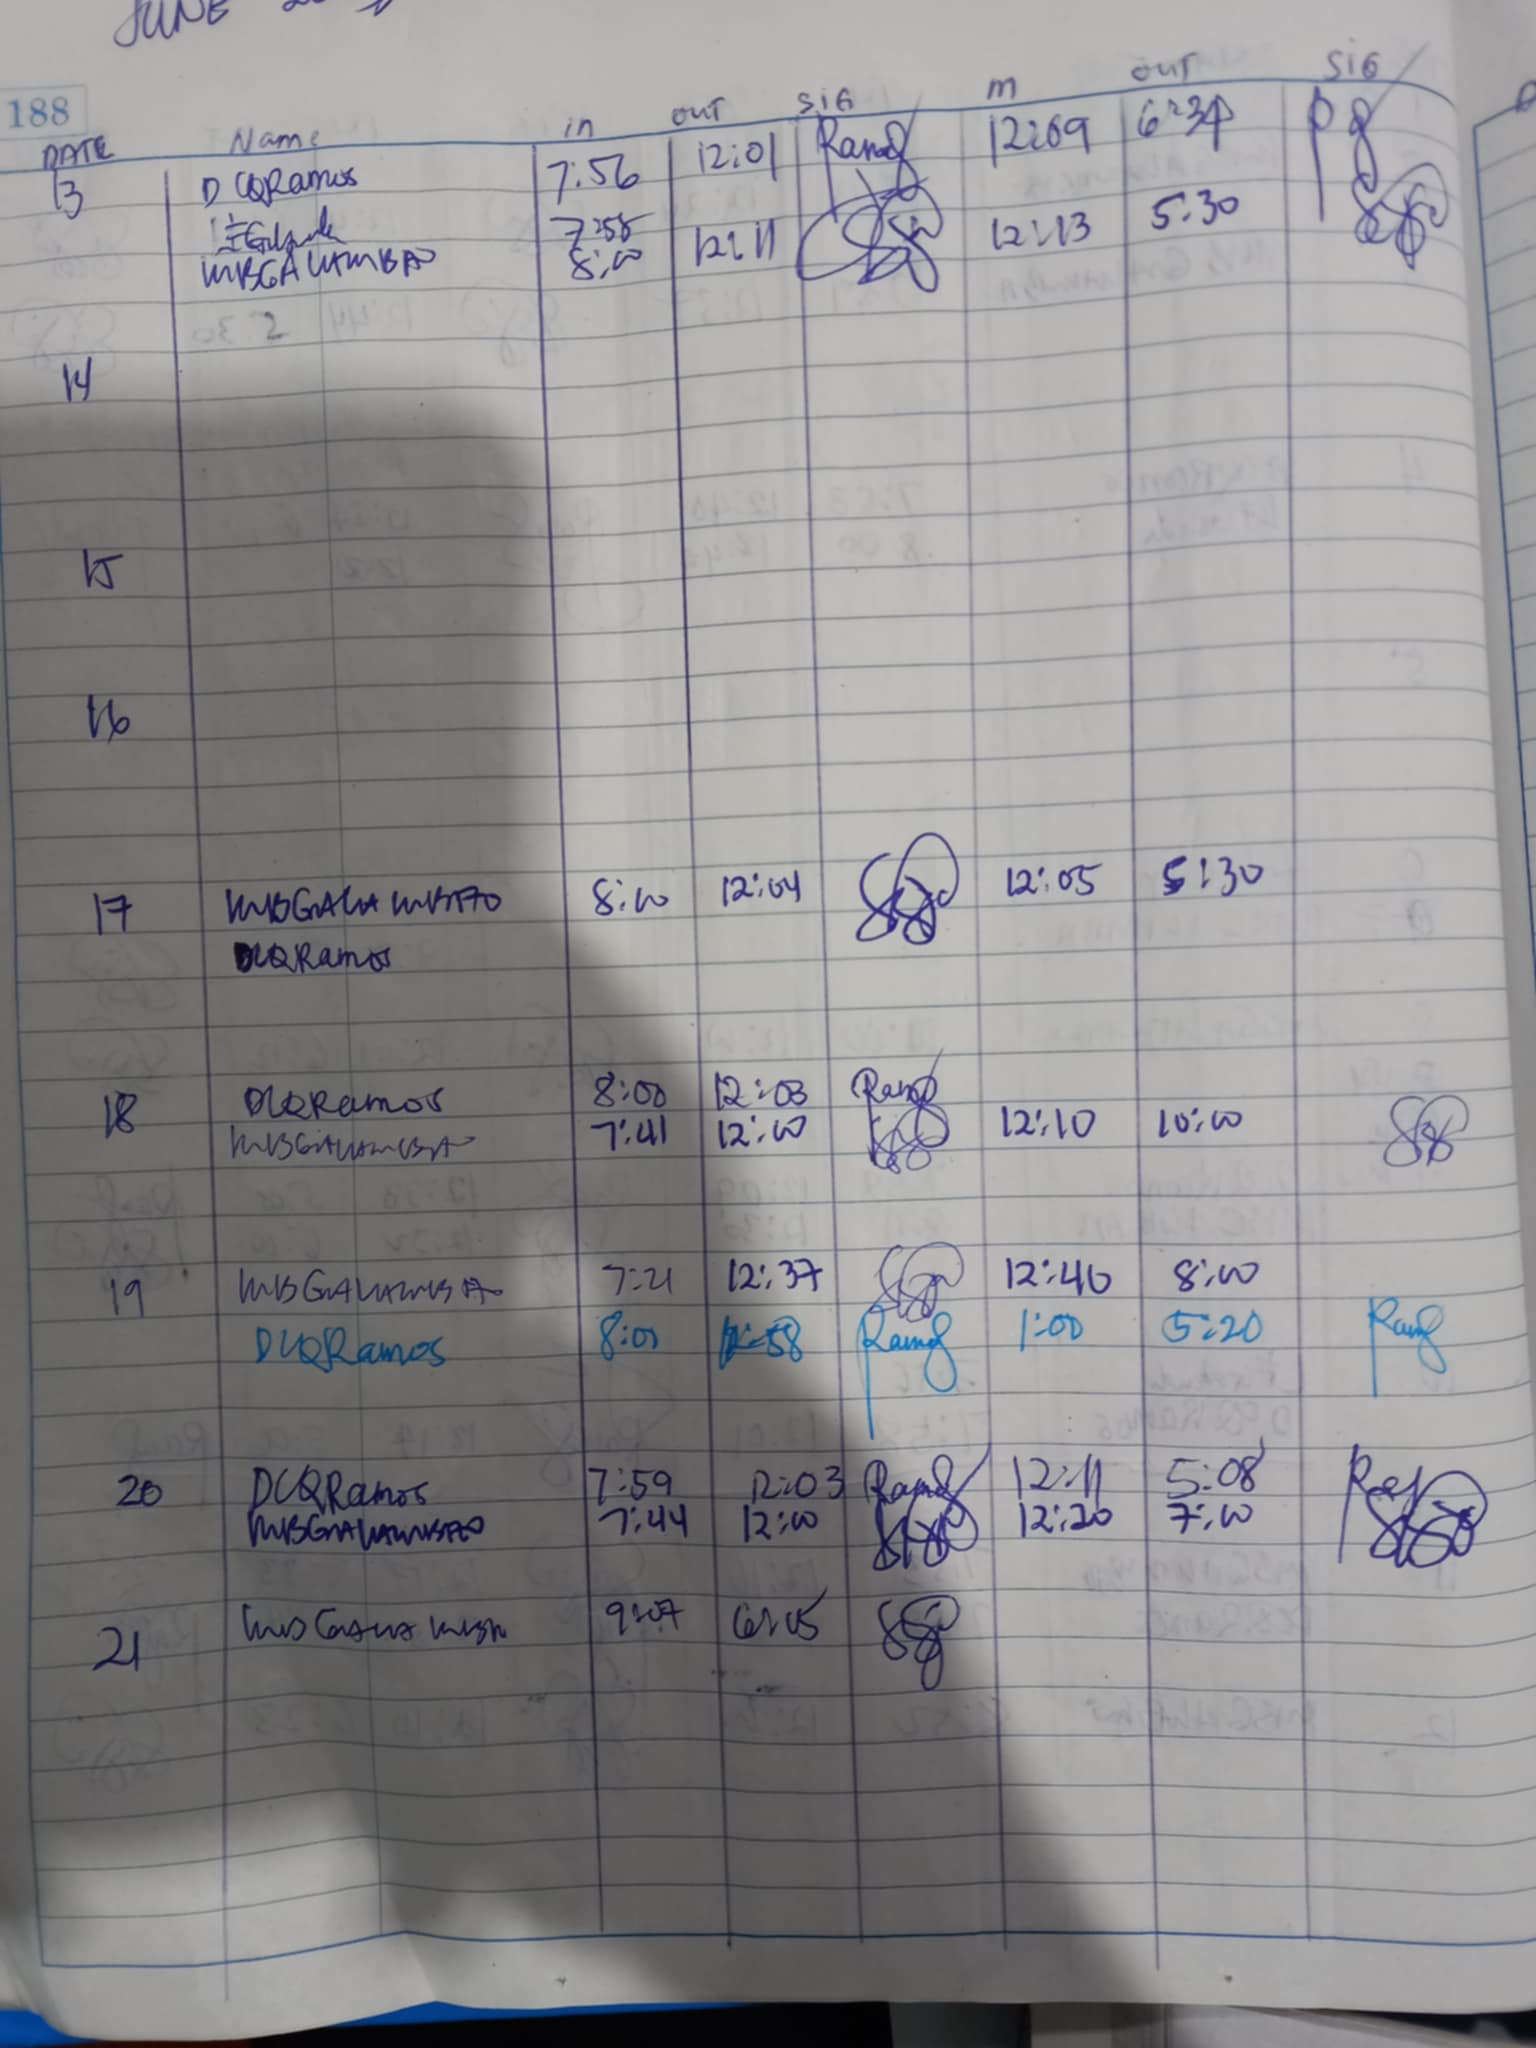 JUNE
188
DATE Name in out SIG in out SIG
13 DCQRamos 7:56 12:01 12:09 6:34
7:55
MBGALAMBAO 8:00 12:11 12:13 5:30
14
15
16
17 MBGALAMBAO 8:00 12:04 12:05 5:30
DCQRamos
18 DCQRamos 8:00 12:03
MBGALAMBAO 7:41 12:00 12:10 10:00
19 MBGALAMBAO 7:21 12:37 12:40 8:00
DCQRamos 8:00 12:58 1:00 5:20
20 DCQRamos 7:59 12:03 12:11 5:08
MBGALAMBAO 7:44 12:00 12:20 7:00
21 9:07 6:05